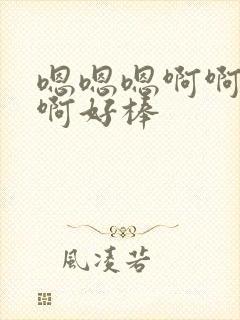 嗯嗯嗯啊啊
啊好棒
風凌若